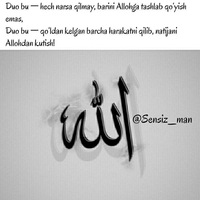 Duo bu — hech narsa qilmay, barini Allohga tashlab qo'yish
emas,
Duo bu — qo'ldan kelgan barcha harakatni qilib, natijani
Allohdan kutish!
الله
@Sensiz_man